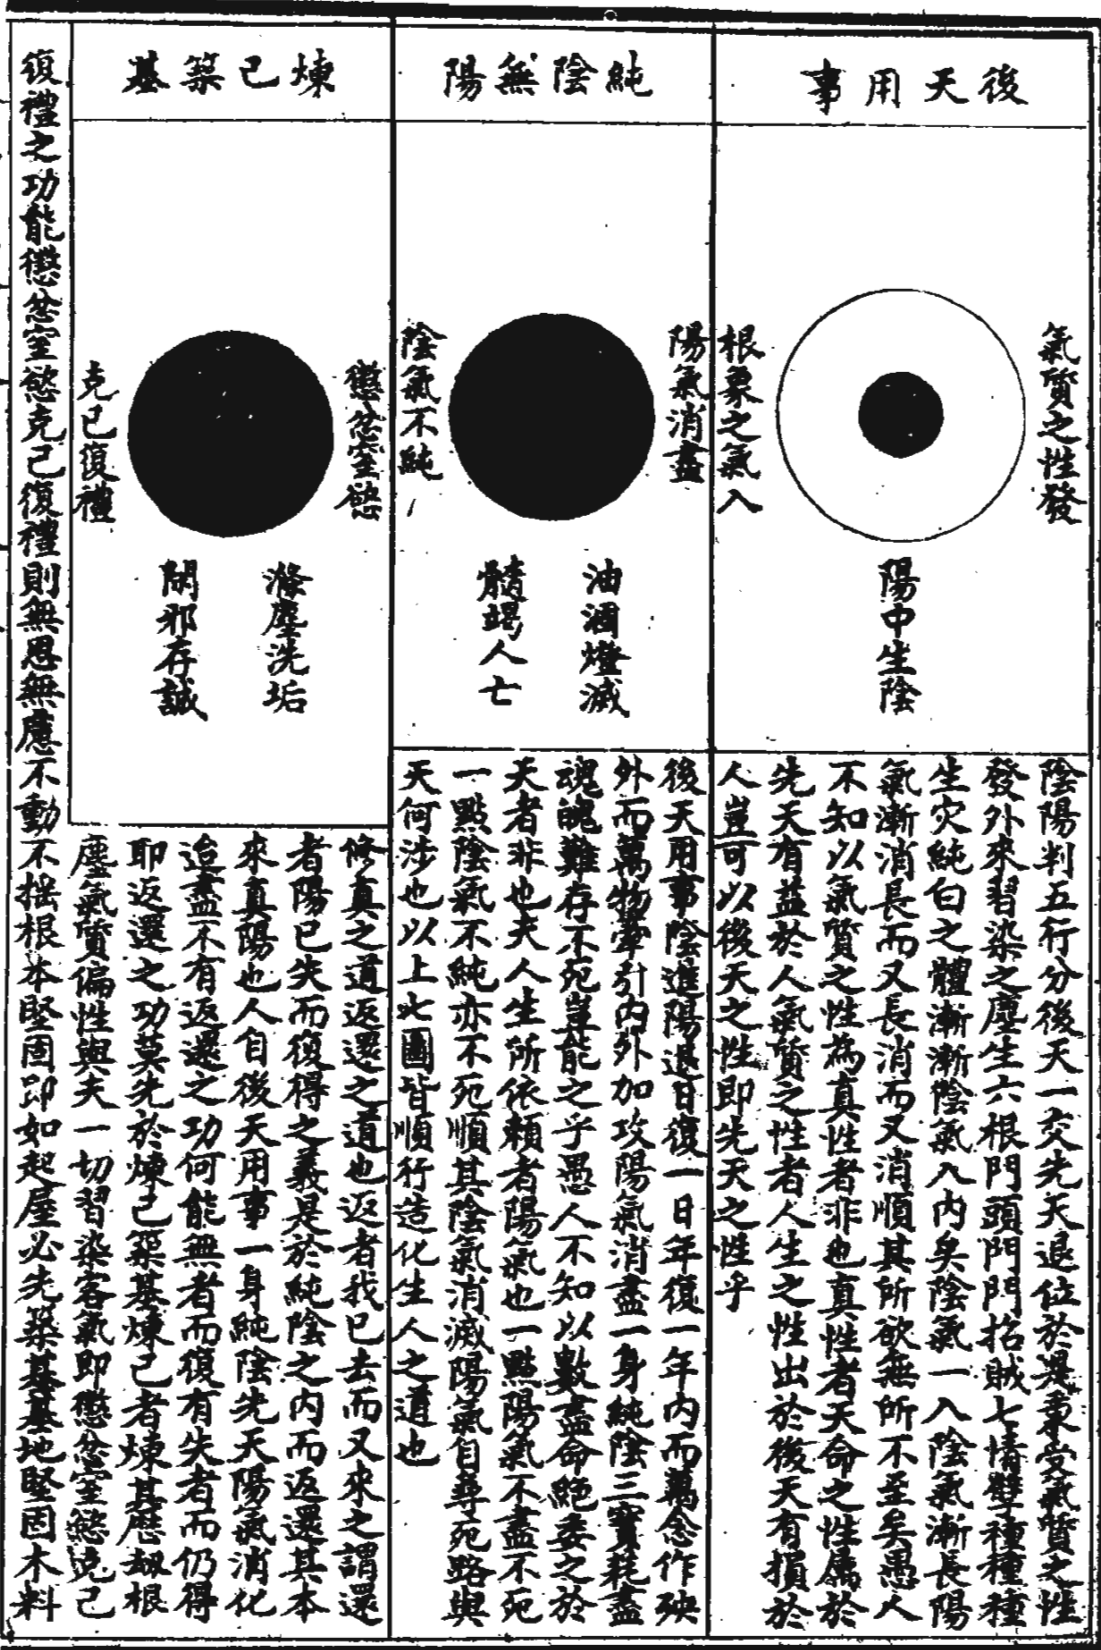 後天用事
氣質之性發
根象之氣入
陽中生陰
陰陽判五行分後天一交先天退位於是稟受氣質之性
發外來習染之塵生六根門頭門門招賊七情孽種種種
生灾純白之體漸漸陰氣入內矣陰氣一入陰氣漸長陽
氣漸消長而又長消而又消順其所欲無所不至矣愚人
不知以氣質之性為真性者非也真性者天命之性属於
先天有益於人氣質之性者人生之性出於後天有損於
人豈可以後天之性即先天之性乎
純陰無陽
陽氣消盡
陰氣不純
油涸燈滅
髓竭人亡
後天用事陰進陽退日復一日年復一年內而萬念作殃
外而萬物牽引內外加攻陽氣消盡一身純陰三寶耗盡
魂魄難存不死豈能之乎愚人不知以數盡命絕委之於
天者非也夫人生所依賴者陽氣也一點陽氣不盡不死
一點陰氣不純亦不死順其陰氣消滅陽氣自尋死路與
天何涉也以上七圖皆順行造化生人之道也
煉已築基
懲忿窒慾
克已復禮
滌塵洗垢
閑邪存誠
修真之道返還之道也返者我已去而又來之謂還
者陽已失而復得之義是於純陰之內而返還其本
來真陽也人自後天用事一身純陰先天陽氣消化
迨盡不有返還之功何能無者而復有失者而仍得
耶返還之功莫先於煉己築基煉己者煉其歷刼根
塵氣質偏性與夫一切習染客氣即懲忿窒慾克己
復禮之功能懲忿窒慾克己復禮則無思無慮不動不搖根本堅固即如起屋必先築基基地堅固木料